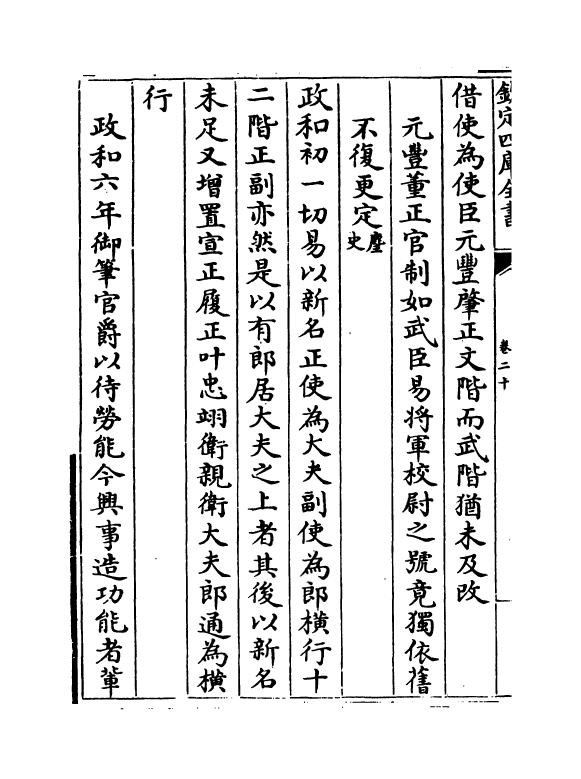 欽定四庫全書
卷二十
借使為使臣元豐肇正文階而武階猶未及改
元豐董正官制如武臣易將軍校尉之號竟獨依舊
不復更定麈史
政和初一切易以新名正使為大夫副使為郎橫行十
二階正副亦然是以有郎居大夫之上者其後以新名
未足又增置宣正履正叶忠翊衛親衛大夫郎通為橫
行
政和六年御筆官爵以待勞能今興事造功能者軰